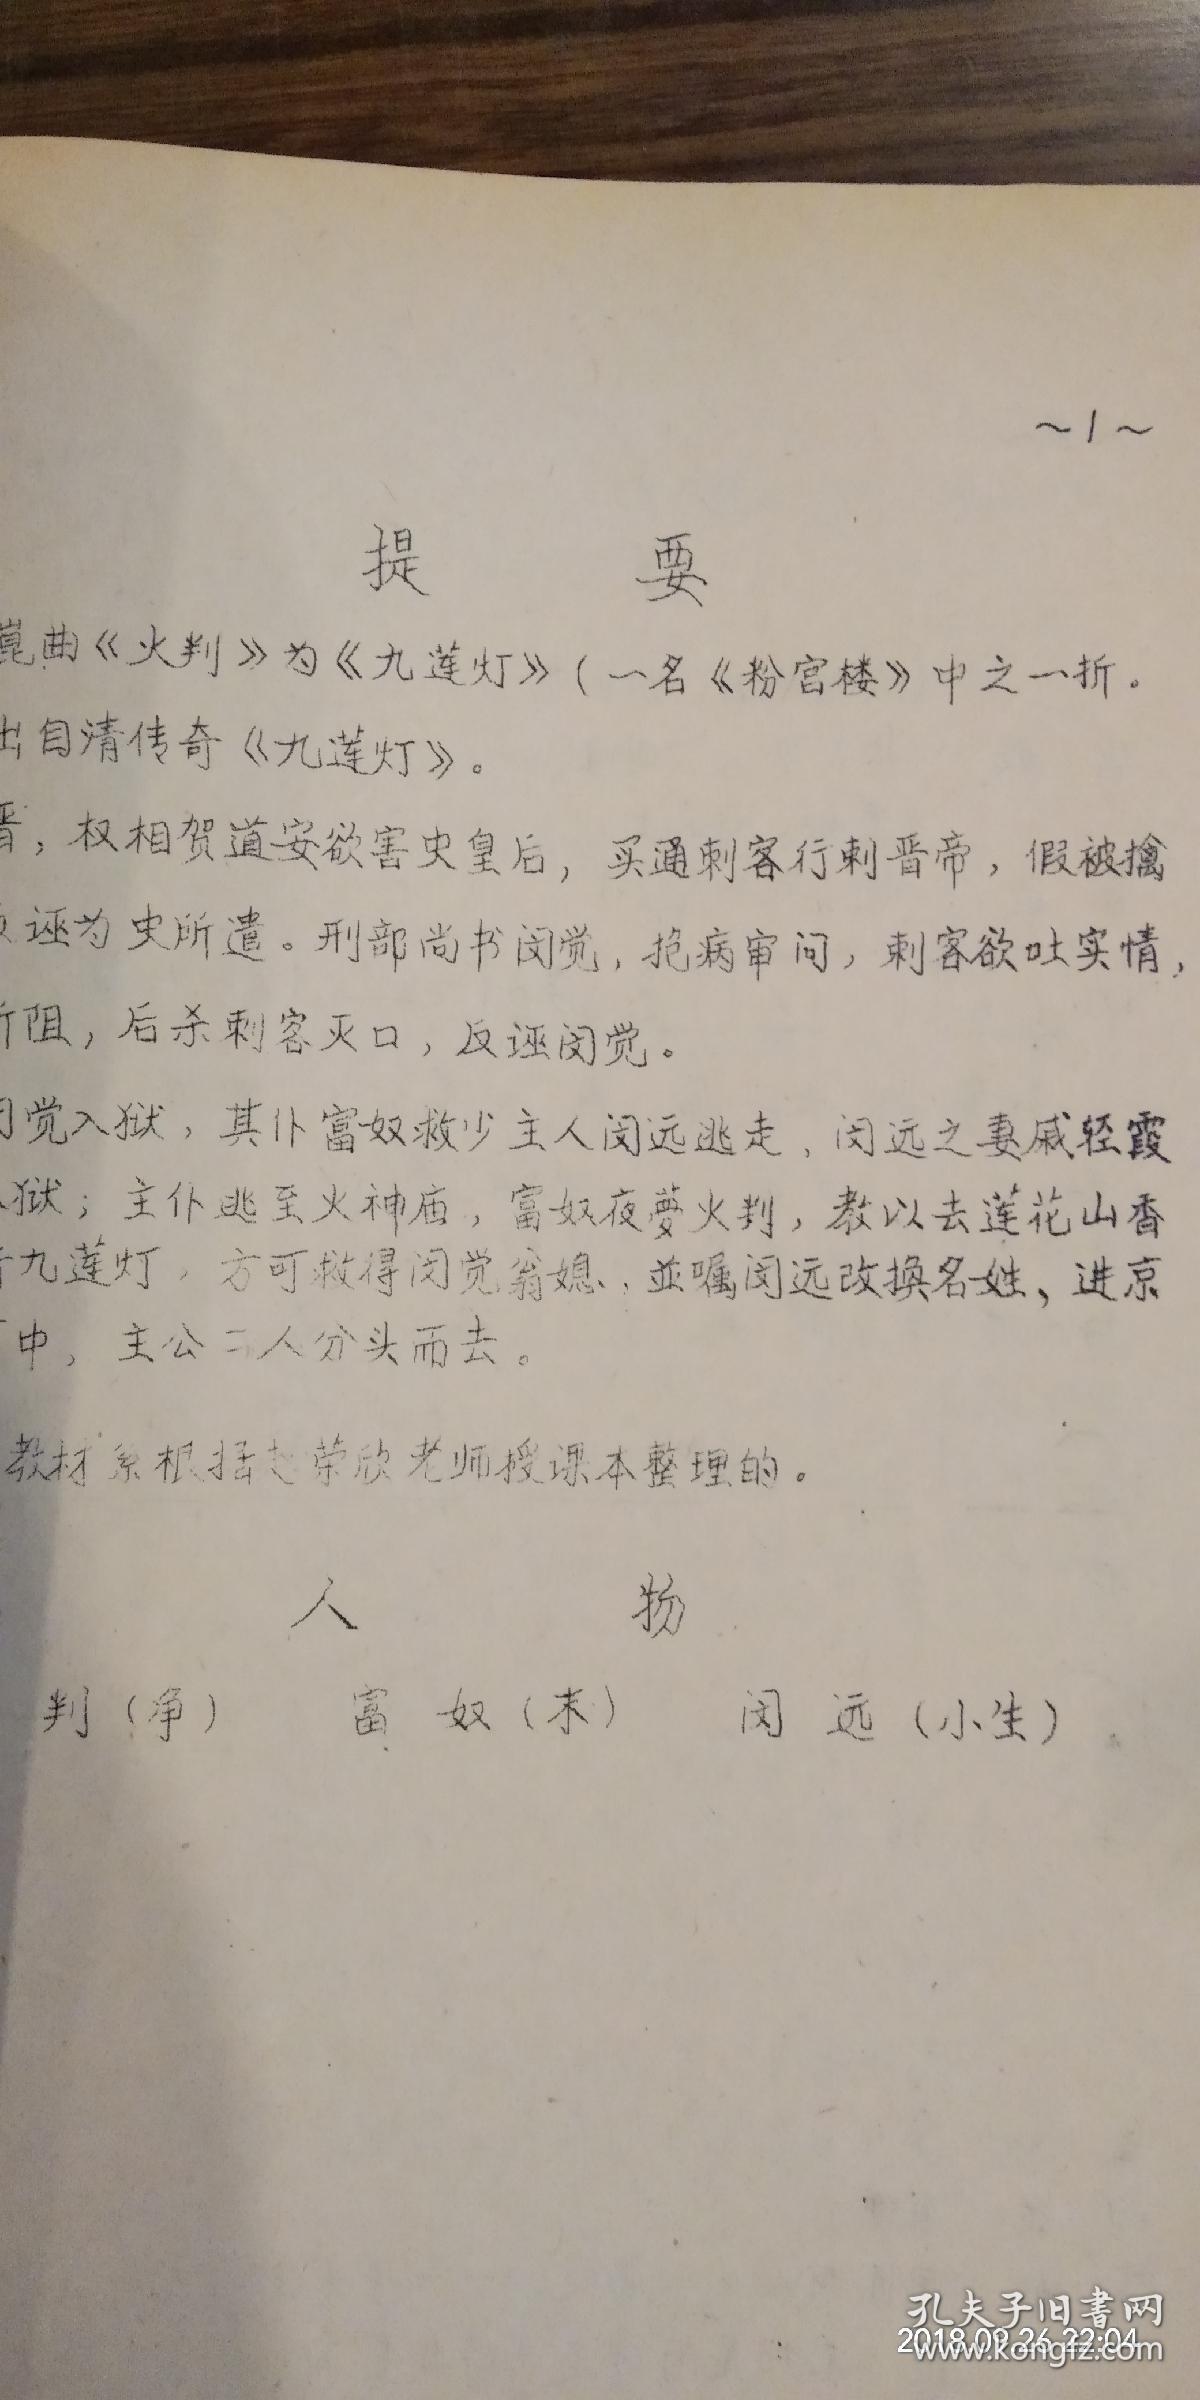 ~1~
提 要
崑曲《火判》为《九莲灯》(一名《粉宫楼》中之一折。
出自清传奇《九莲灯》。
晋，权相贺道安欲害史皇后，买通刺客行刺晋帝，假被擒
诬为史所遣。刑部尚书闵觉，抱病审问，刺客欲吐实情，
所阻，后杀刺客灭口，反诬闵觉。
闵觉入狱，其仆富奴救少主人闵远逃走，闵远之妻戚轻霞
狱；主仆逃至火神庙，富奴夜夢火判，教以去莲花山香
九莲灯，方可救得闵觉翁媳，並嘱闵远改换名姓、进京
中，主公二人分头而去。
教材系根据 荣欣老师授课本整理的。
人 物
判（净） 富 奴（末） 闵 远（小生）
孔夫子旧书网
2018.09.26 22:04
www.kongfz.com